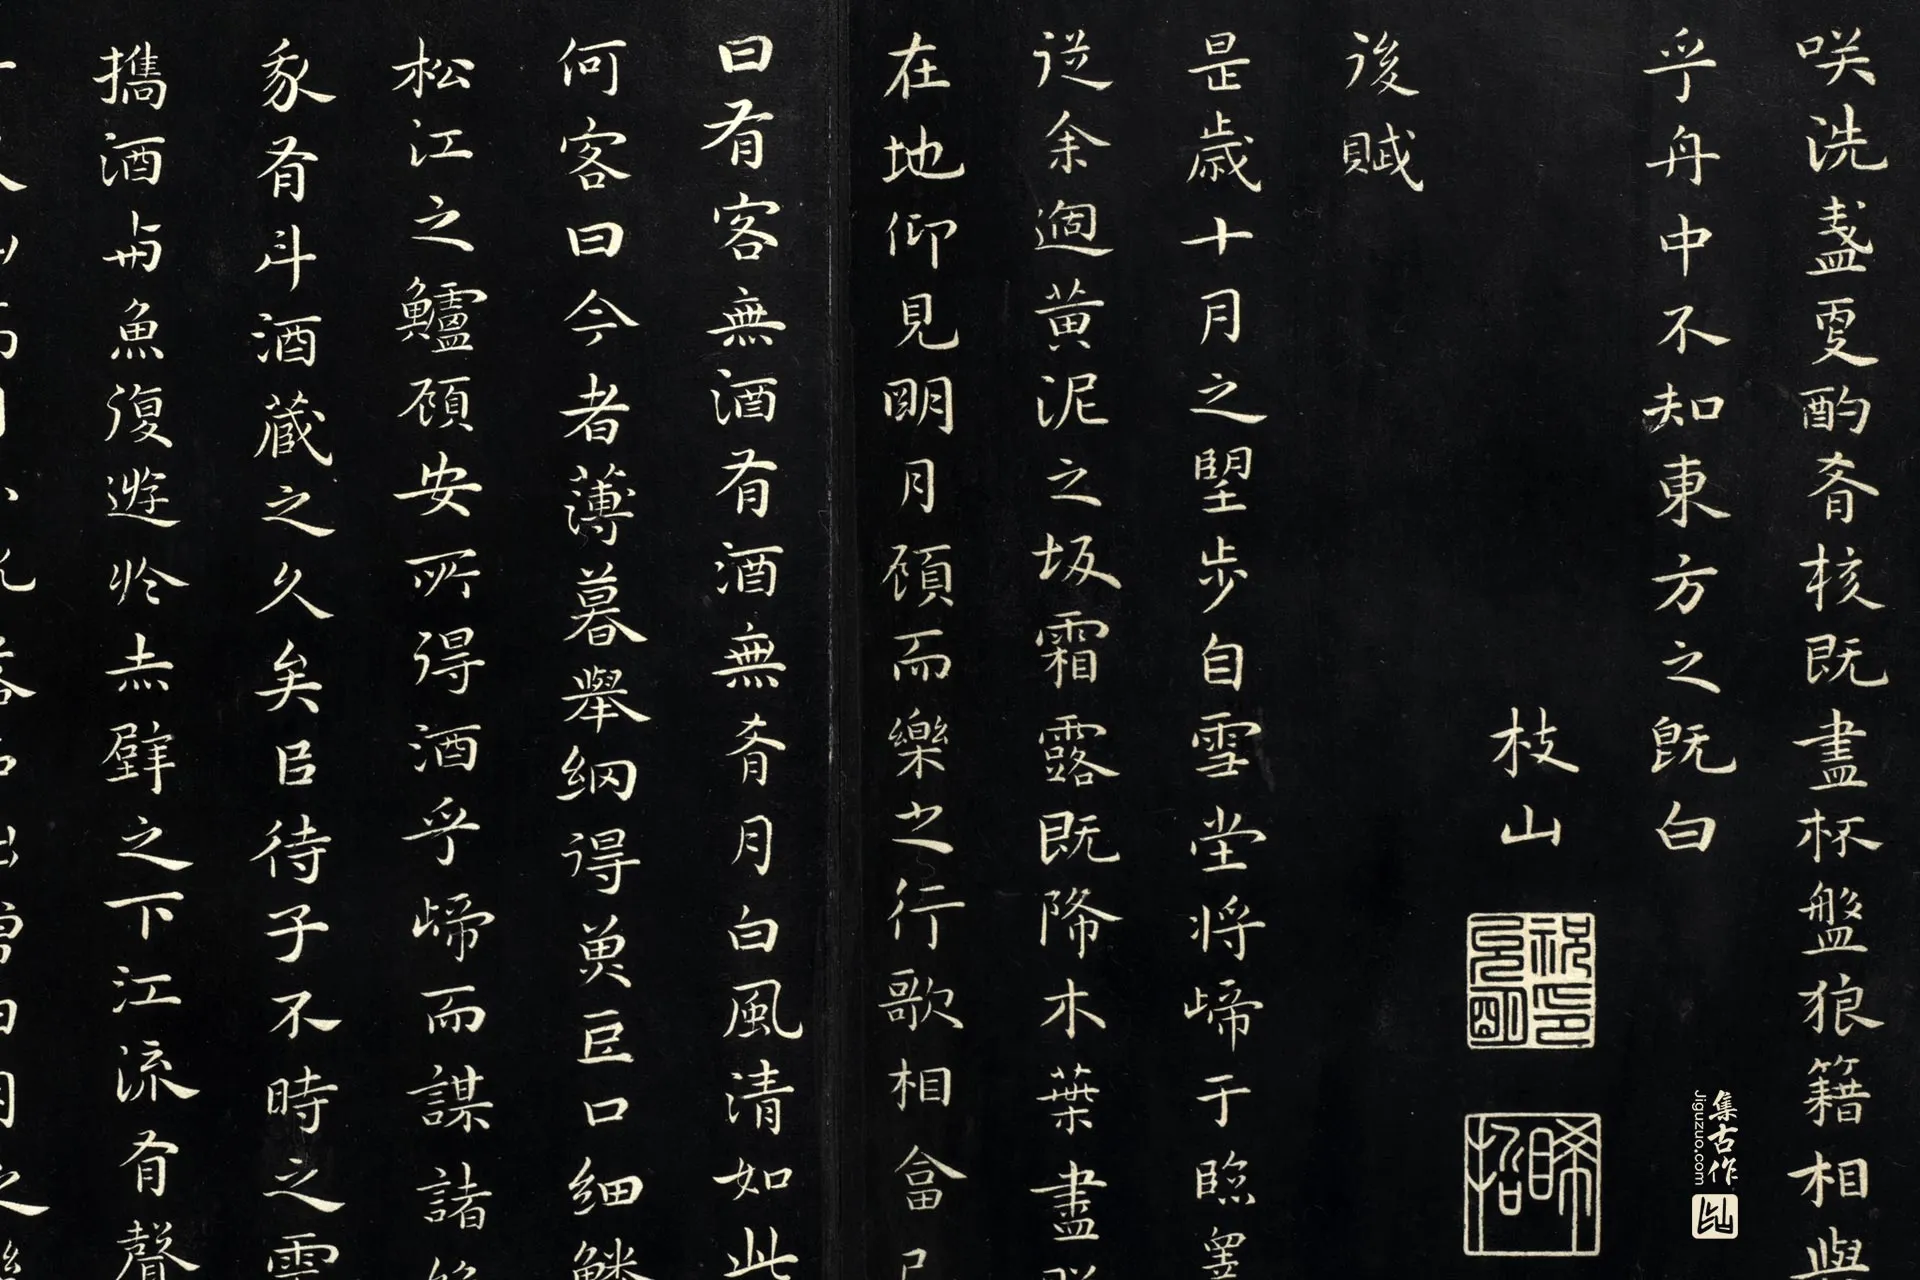 咲洗盞更酌肴核既盡杯盤狼籍相與
乎舟中不知東方之既白
枝山
祝允明印
晞招
後賦
是歳十月之望步自雪堂将歸于臨臯
従余過黄泥之坂霜露既降木葉盡
在地仰見明月顧而樂之行歌相畣已
曰有客無酒有酒無肴月白風清如此
何客曰今者薄暮舉網得魚巨口細鱗
松江之鱸顧安所得酒乎歸而謀諸
我有斗酒蔵之久矣㠯待子不時之需
攜酒与魚復遊於赤壁之下江流有聲
集古作
Jiguzuo.com